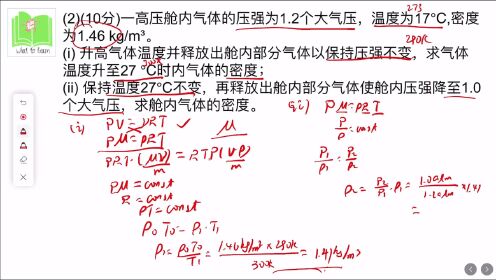 What to learn
(2)(10分)一高压舱内气体的压强为1.2个大气压，温度为17°C,密度
为1.46 kg/m³。
273
290K
(i) 升高气体温度并释放出舱内部分气体以保持压强不变，求气体
温度升至27 °C时内气体的密度；
300K
(ii) 保持温度27°C不变，再释放出舱内部分气体使舱内压强降至1.0
个大气压，求舱内气体的密度。
(i) PV=nRT ✓ μ
Pμ=ρRT
ρRT·(μV)/m = RTρ(Vρ)/m
Pμ=const
R=const
ρT=const
ρ₀T₀=ρ₁·T₁
ρ₁=ρ₀T₀/T₁=1.46kg/m³×290K/300K=1.41kg/m³
Pμ=ρRT
P/ρ=const
P₁/ρ₁=P₂/ρ₂
ρ₂=P₂/P₁·ρ₁=1.0atm/1.2atm×1.41
=